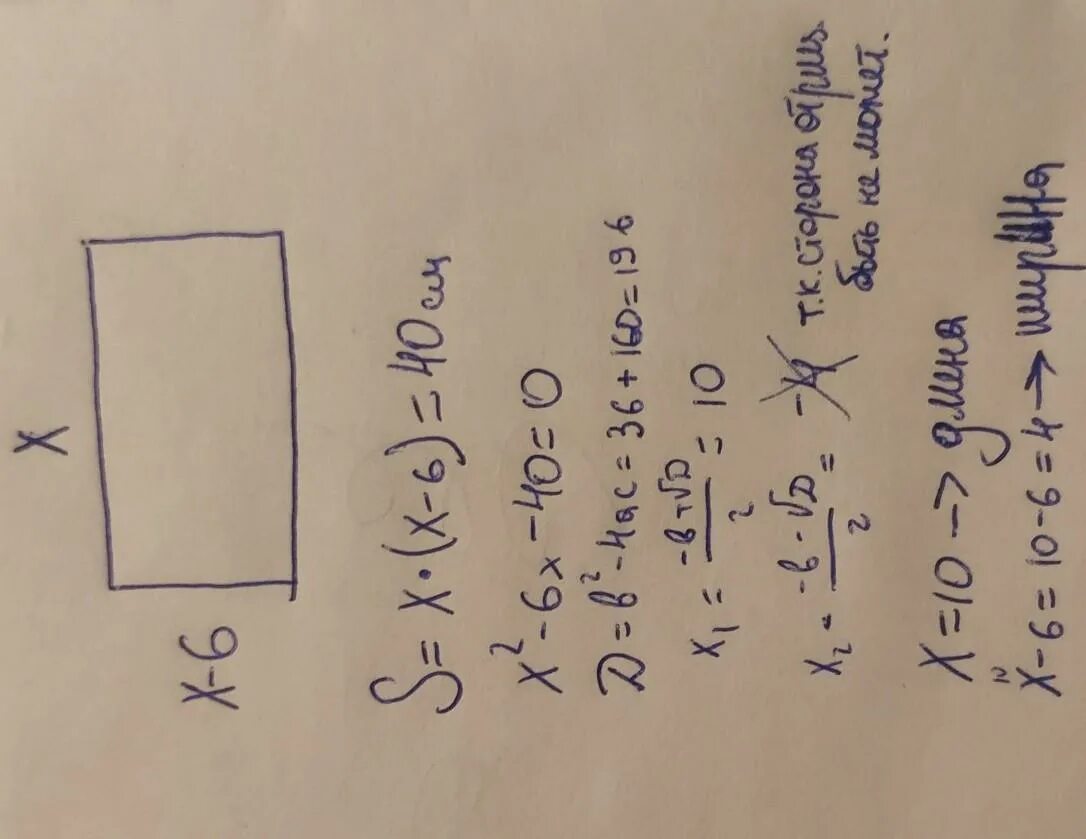 x
x-6
S = x·(x-6) = 40 см
x² - 6x - 40 = 0
D = в² - 4ас = 36 + 160 = 196
x₁ = (-в+√D)/2 = 10
x₂ = (-в-√D)/2 = -4 т.к. сторона отриц.
быть не может.
x = 10 → длина
x - 6 = 10 - 6 = 4 → ширина